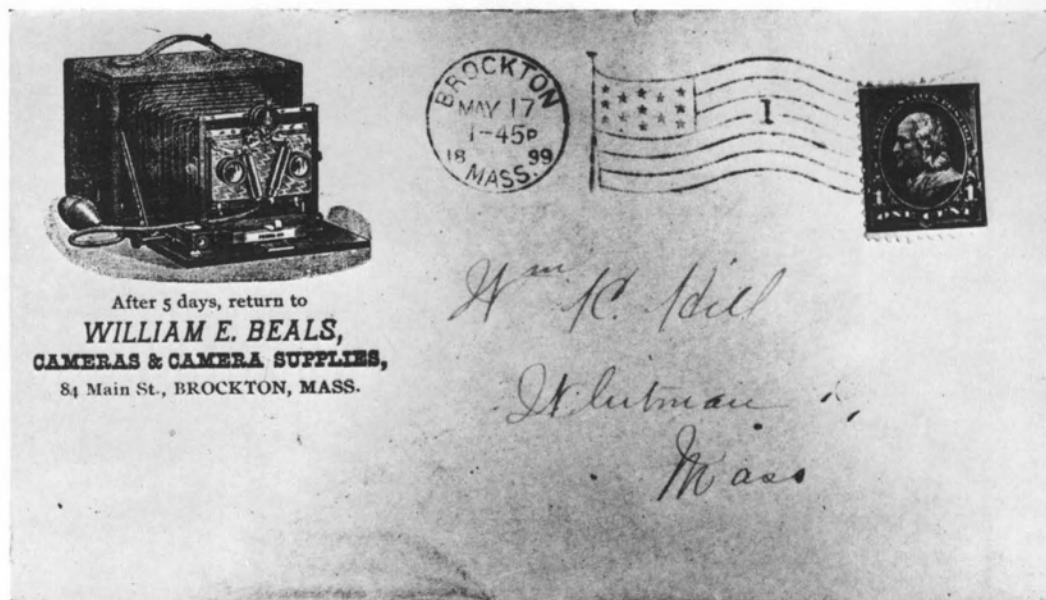 After 5 days, return to
WILLIAM E. BEALS,
CAMERAS & CAMERA SUPPLIES,
84 Main St., BROCKTON, MASS.
BROCKTON
MAY 17
1-45P
18 99
MASS.
1
1 1
ONE CENT
Wm K. Hill
Whitman
Mass